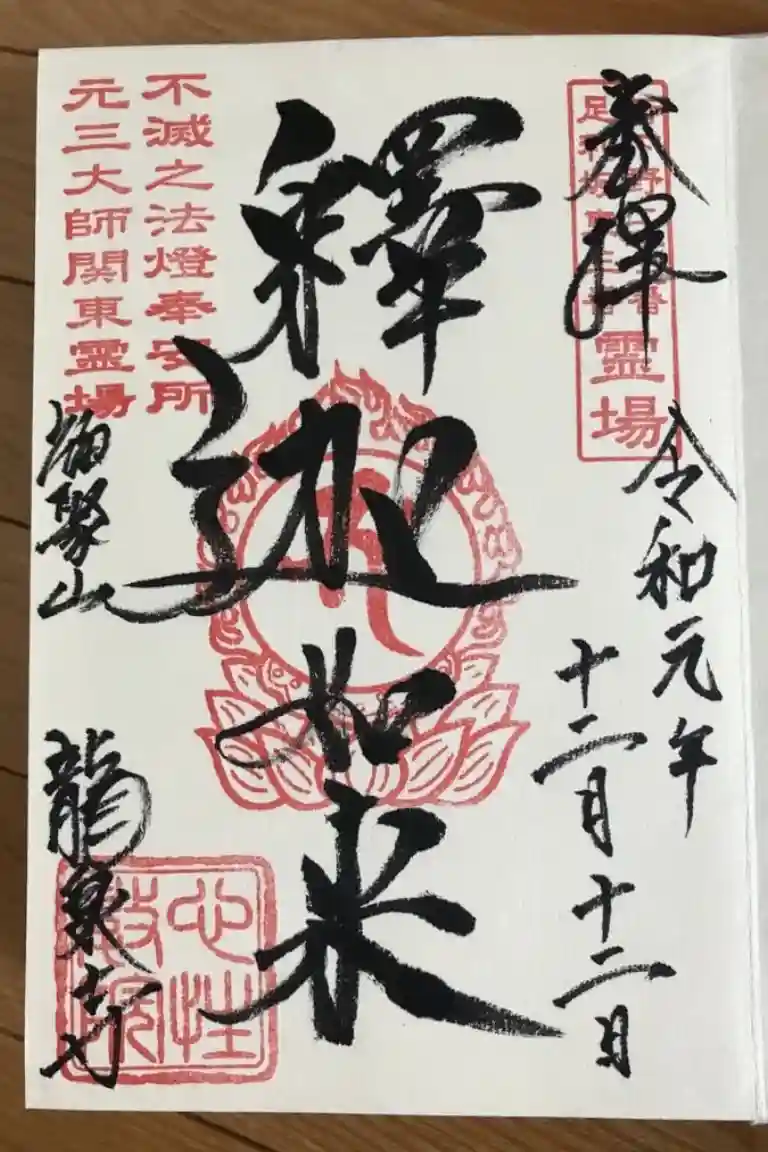 奉拝
霊場
令和元年
十二月十二日
釋迦如来
不滅之法燈奉安所
元三大師関東霊場
福聚山
龍泉寺
心性